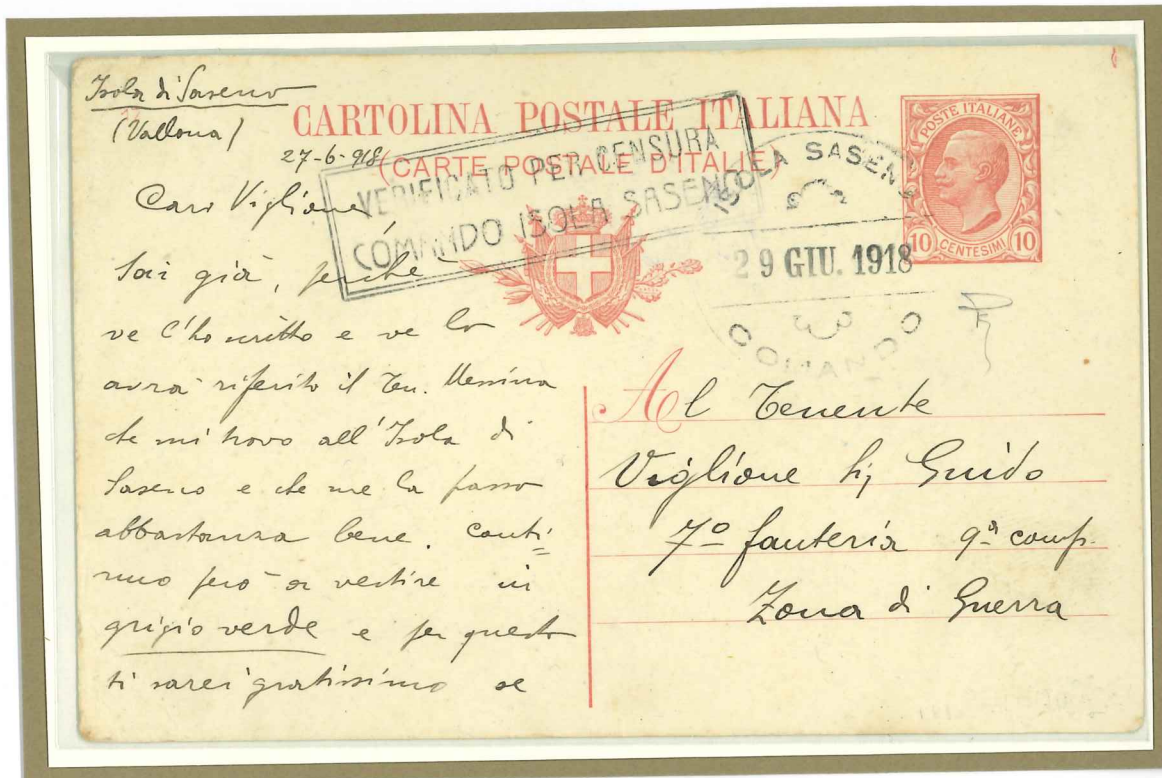 Isola di Saseno
(Vallona)
27-6-918
CARTOLINA POSTALE ITALIANA
(CARTE POSTALE D'ITALIE)
VERIFICATO PER CENSURA
COMANDO ISOLA SASENO
ISOLA SASENO
29 GIU. 1918
COMANDO
POSTE ITALIANE
10 CENTESIMI 10
Caro Viglione,
Sai già, perché
ve l'ho scritto e ve lo
avrà riferito il Ten. Messina
che mi trovo all'Isola di
Saseno e che me la passo
abbastanza bene. Conti=
nuo però a vestire in
grigio verde e per questo
ti sarei gratissimo se
Al Tenente
Viglione Guido
7º fanteria 9ª comp.
Zona di Guerra